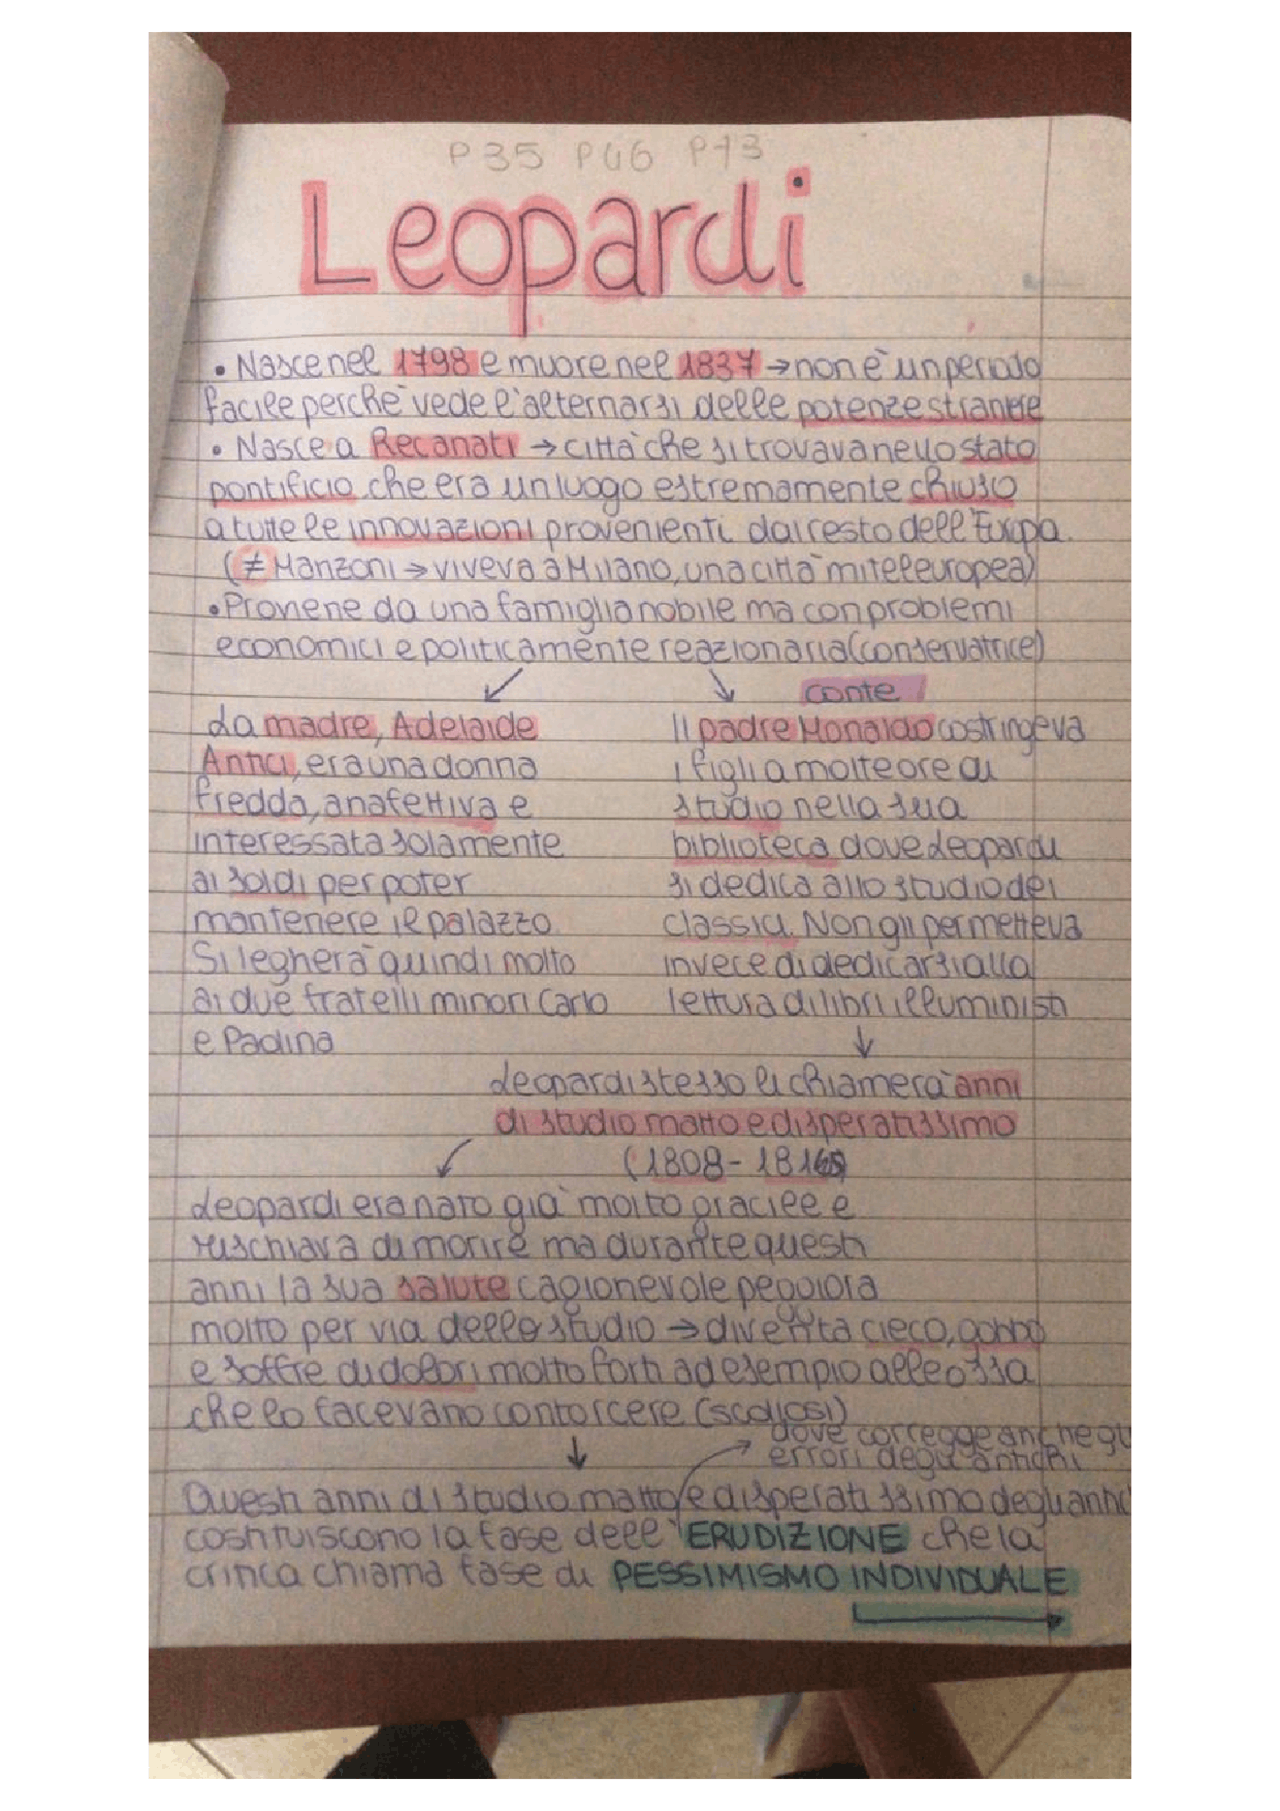 P35 P46 P73
Leopardi
• Nasce nel 1798 e muore nel 1837 → non è un periodo
facile perchè vede l'alternarsi delle potenze straniere
• Nasce a Recanati → città che si trovava nello stato
pontificio che era un luogo estremamente chiuso
a tutte le innovazioni provenienti dal resto dell'Europa.
(≠ Manzoni → viveva a Milano, una città mitteleuropea)
• Proviene da una famiglia nobile ma con problemi
economici e politicamente reazionaria (conservatrice)
La madre, Adelaide
Antici, era una donna
fredda, anafettiva e
interessata solamente
ai soldi per poter
mantenere il palazzo.
Si legherà quindi molto
ai due fratelli minori Carlo
e Paolina
conte
Il padre Monaldo costringeva
i figli a molte ore di
studio nella sua
biblioteca dove Leopardi
si dedica allo studio dei
classici. Non gli permetteva
invece di dedicarsi alla
lettura di libri illuministi
↓
Leopardi stesso li chiamerà anni
di studio matto e disperatissimo
(1808 - 1816)
Leopardi era nato già molto gracile e
rischiava di morire ma durante questi
anni la sua salute cagionevole peggiora
molto per via dello studio → diventa cieco, gobbo
e soffre di dolori molto forti ad esempio alle ossa
che lo facevano contorcere (scoliosi)
↓
→ dove corregge anche gli
errori degli antichi
Questi anni di studio matto e disperatissimo degli antichi
costituiscono la fase dell'ERUDIZIONE che la
critica chiama fase di PESSIMISMO INDIVIDUALE